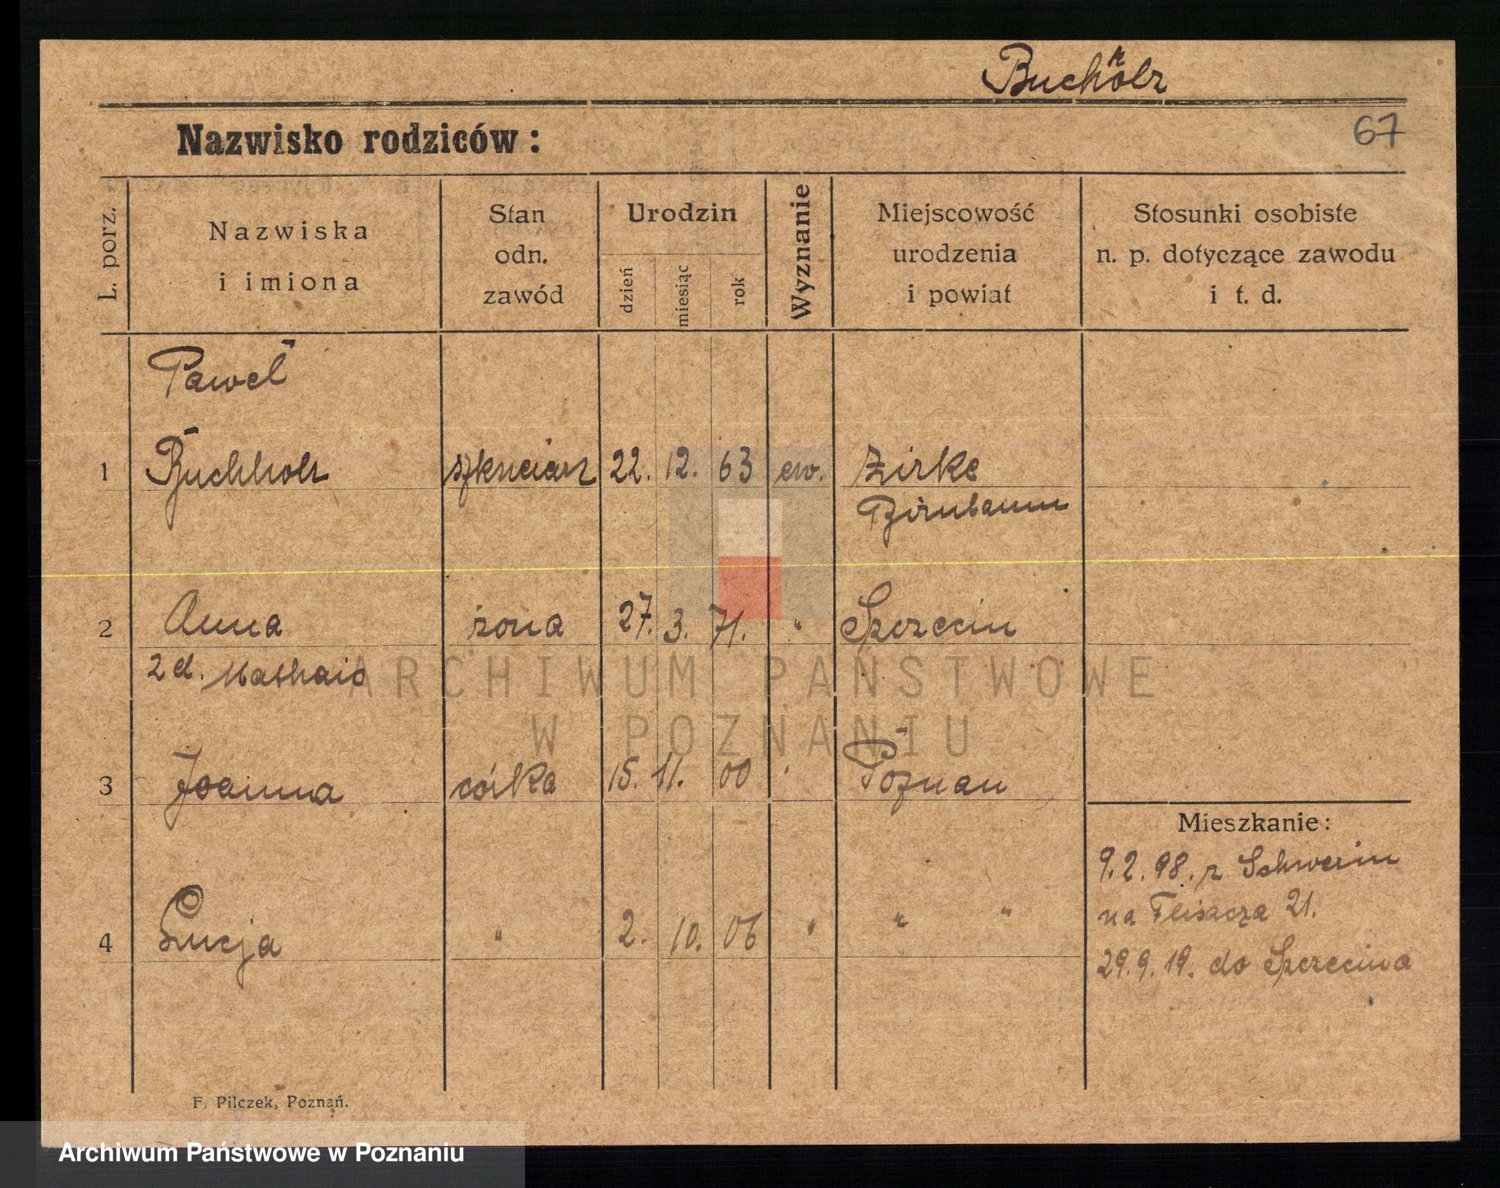 Buchholz
Nazwisko rodziców:
67
L. porz.
Nazwiska
i imiona
Stan
odn.
zawód
Urodzin
dzień
miesiąc
rok
Wyznanie
Miejscowość
urodzenia
i powiat
Stosunki osobiste
n. p. dotyczące zawodu
i t. d.
Paweł
1 Buchholz 22. 12. 63 ew. Zirke
Birnbaum
2 Anna żona 27. 3. 71. " Szczecin
Mathais
3 Joanna córka 15. 11. 00 " Poznań
Mieszkanie:
9.2.98. z Schwerin
na 21.
4 Łucja " 2. 10. 06 " " "
29.9.19. do Szczecina
F. Pilczek, Poznań.
ARCHIWUM PAŃSTWOWE
W POZNANIU
Archiwum Państwowe w Poznaniu